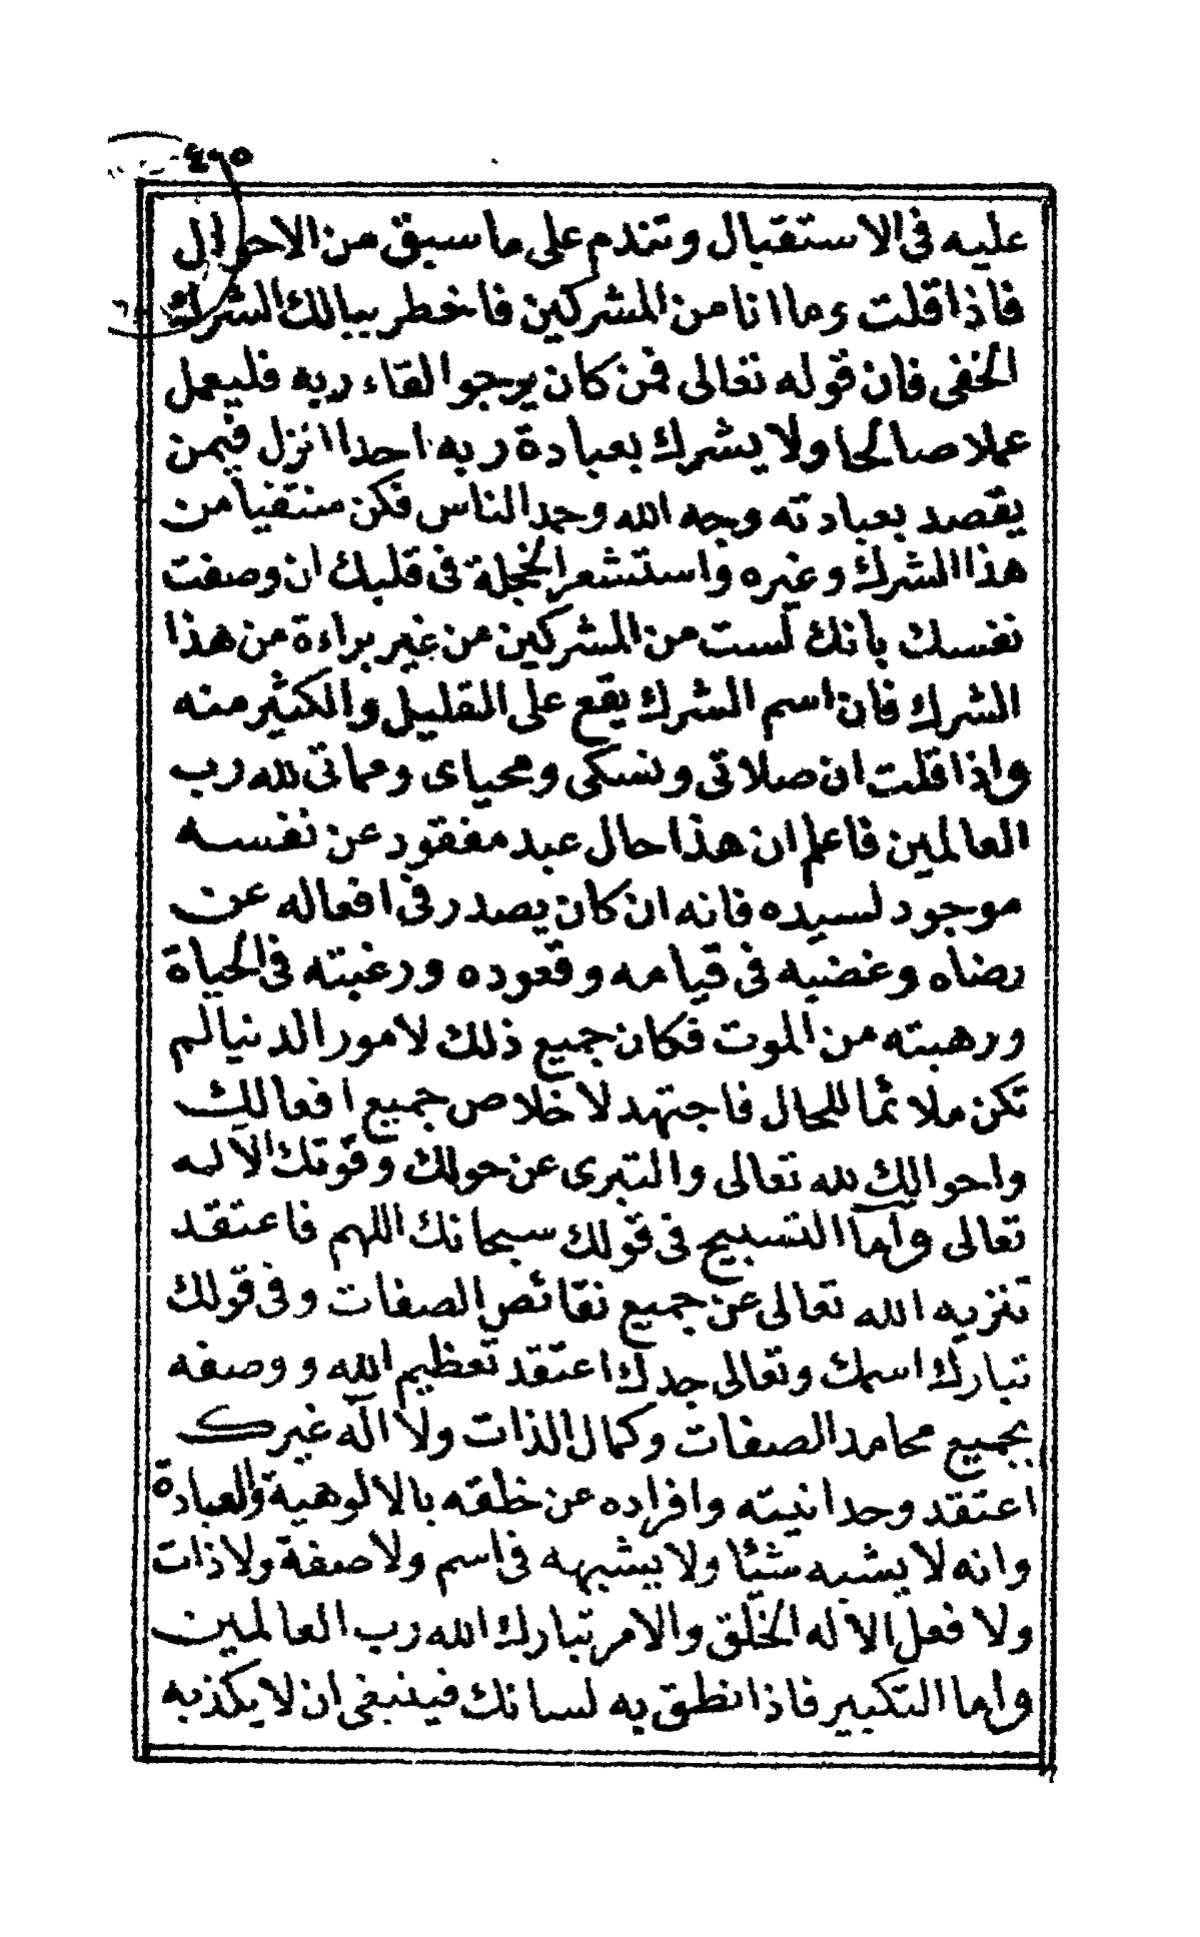 ٤٠٥
عليه فى الاستقبال وتندم على ما سبق من الاحوال
فاذا قلت وما انا من المشركين فاخطر ببالك الشرك
الخفى فان قوله تعالى فمن كان يرجوا لقاء ربه فليعمل
عملا صالحا ولا يشرك بعبادة ربه احدا انزل فيمن
يقصد بعبادته وجه الله وحمد الناس فكن منتفيا من
هذا الشرك وغيره واستشعر الخجلة فى قلبك ان وصفت
نفسك بأنك لست من المشركين من غير براءة من هذا
الشرك فان اسم الشرك يقع على القليل والكثير منه
واذا قلت ان صلاتى ونسكى ومحياى ومماتى لله رب
العالمين فاعلم ان هذا حال عبد مفقود عن نفسه
موجود لسيده فانه ان كان يصدر فى افعاله عن
رضاه وغضبه فى قيامه وقعوده ورغبته فى الحياة
ورهبته من الموت فكان جميع ذلك لامور الدنيا لم
تكن ملائما للحال فاجتهد لاخلاص جميع افعالك
واحوالك لله تعالى والتبرى عن حولك وقوتك الا له
تعالى وأما التسبيح فى قولك سبحانك اللهم فاعتقد
تنزيه الله تعالى عن جميع نقائص الصفات وفى قولك
تبارك اسمك وتعالى جدك اعتقد تعظيم الله ووصفه
بجميع محامد الصفات وكمال الذات ولا آله غيرك
اعتقد وحدانيته وافراده عن خلقه بالالوهية والعبادة
وانه لا يشبه شيئا ولا يشبهه فى اسم ولا صفة ولا ذات
ولا فعل الا له الخلق والامر تبارك الله رب العالمين
واما التكبير فاذا نطق به لسانك فينبغى ان لا يكذبه